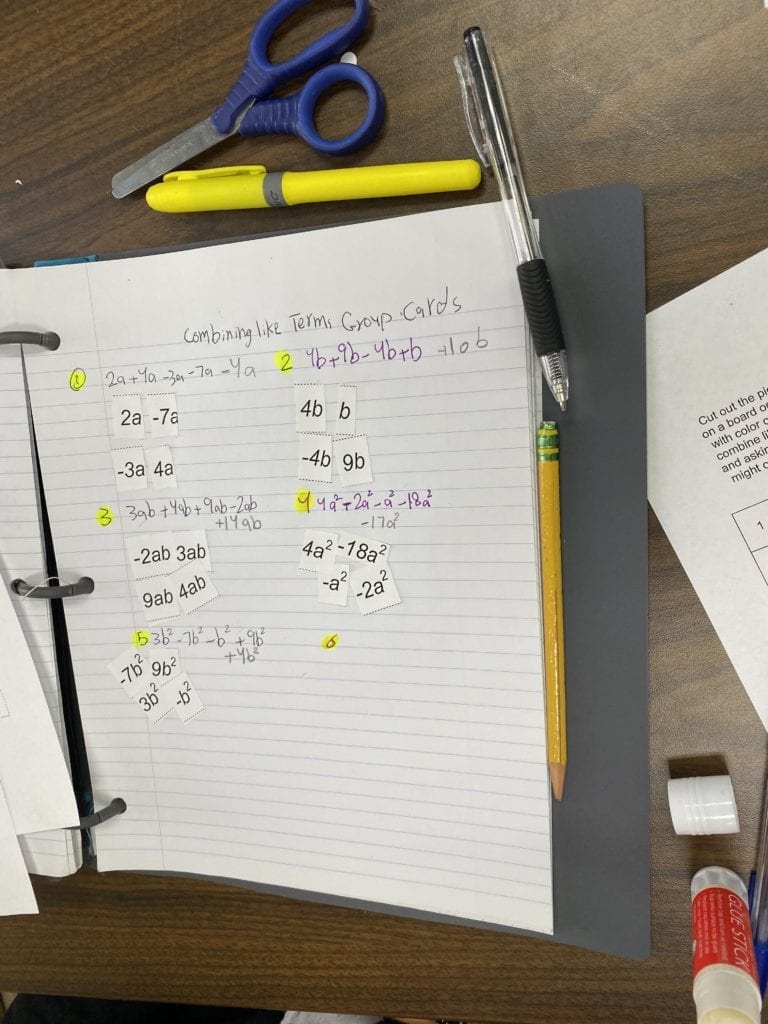 Combining like Terms Group Cards
① 2a + 4a - 3a - 7a - 4a
2a -7a
-3a 4a
2 4b + 9b - 4b + b + 10b
4b b
-4b 9b
3 3ab + 4ab + 9ab - 2ab
+14ab
-2ab 3ab
9ab 4ab
4 4a² - 2a² - a² - 18a²
-17a²
4a² -18a²
-a² -2a²
5 3b² - 7b² - b² + 9b²
+4b²
-7b² 9b²
3b² -b²
6
Cut out the
on a board
with color
combine
and
might
1
GLUE STICK